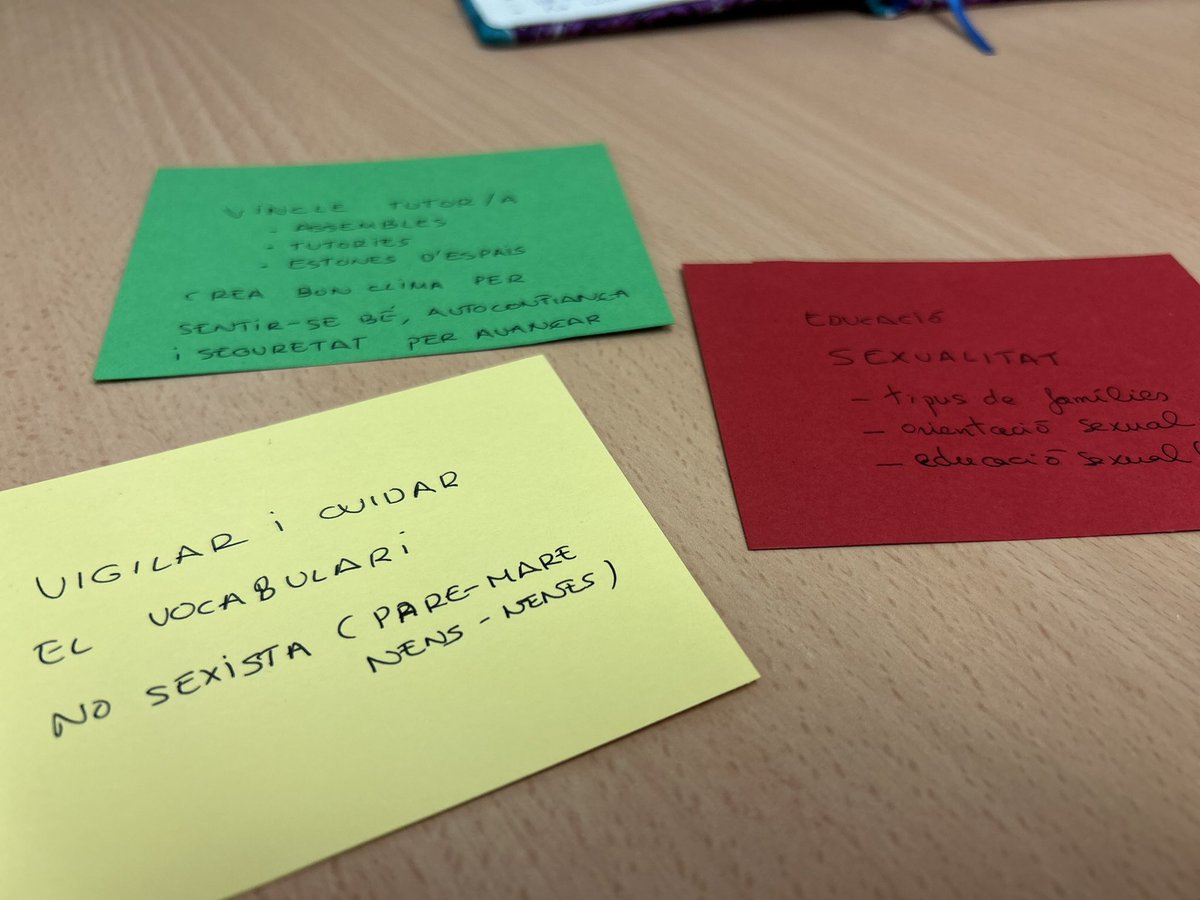 VINCLE TUTOR/A
- ASSEMBLES
- TUTORIES
- ESTONES D'ESPAIS
CREA BON CLIMA PER
SENTIR-SE BÉ, AUTOCONFIANÇA
i SEGURETAT PER AVANÇAR
EDUCACIÓ
SEXUALITAT
- tipus de famílies
- orientació sexual
- educació sexual
VIGILAR i CUIDAR
EL VOCABULARi
NO SEXISTA (PARE-MARE
NENS - NENES)